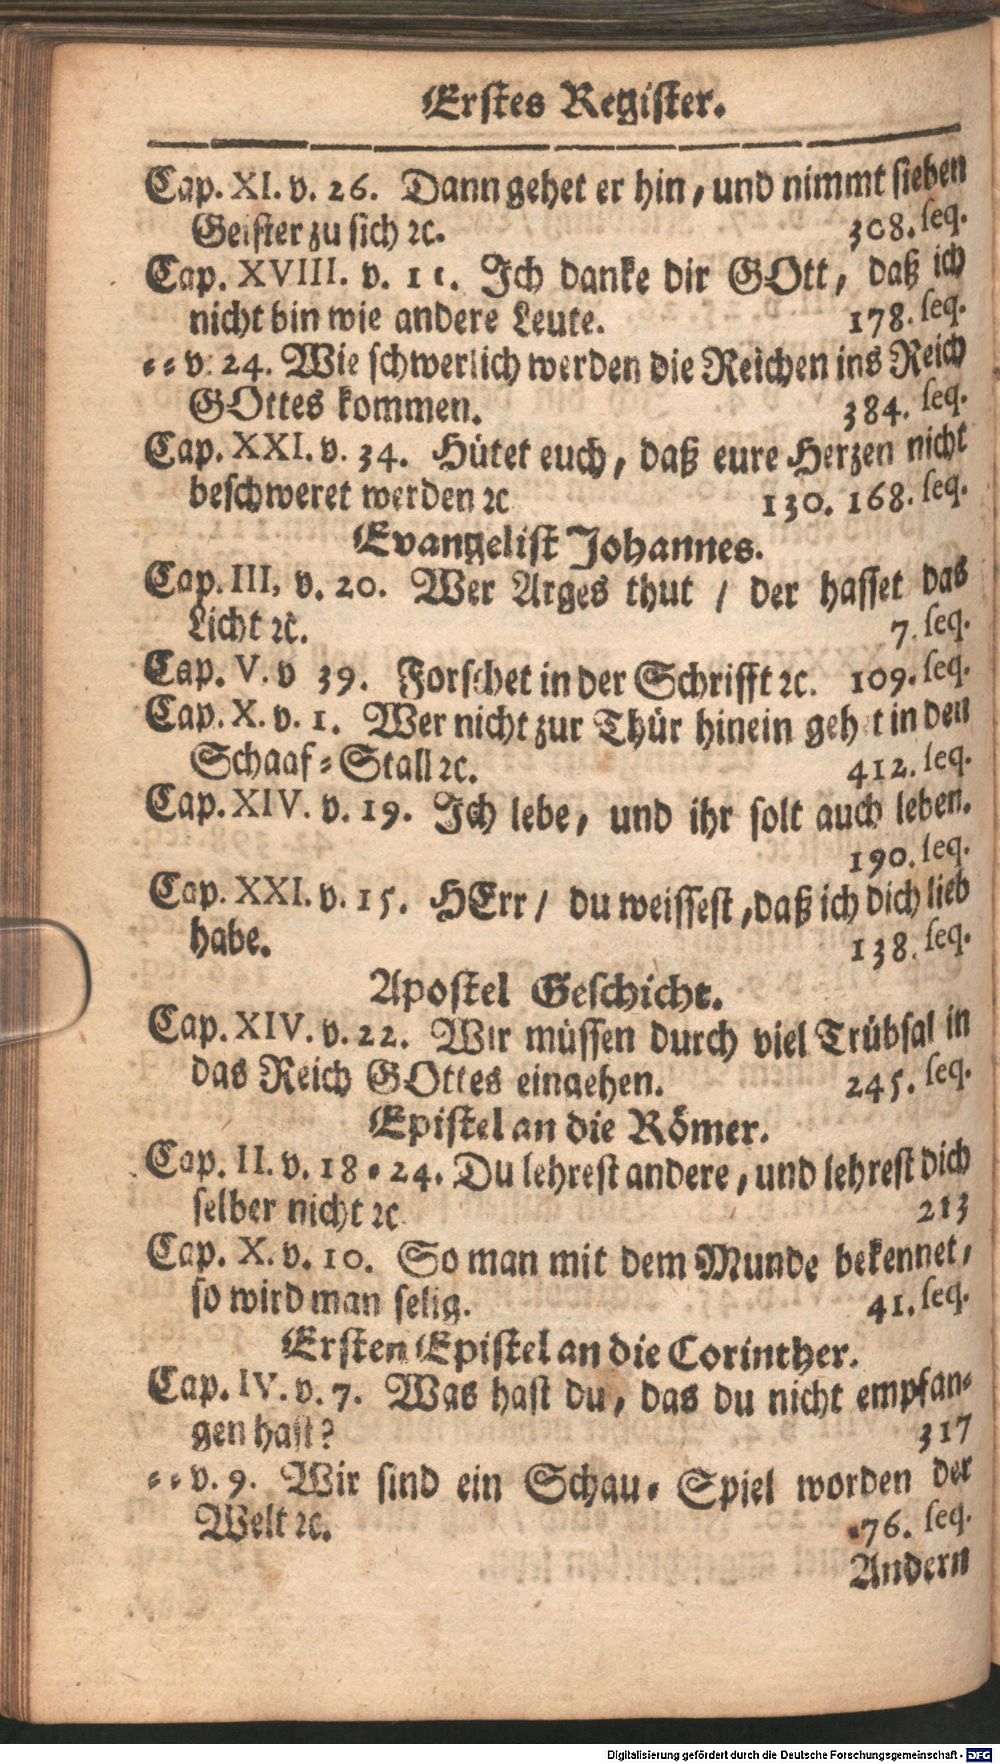 Erstes Register.
Cap. XI. v. 26. Dann gehet er hin, und nimmt sieben
Geister zu sich ꝛc. 308. seq.
Cap. XVIII. v. 11. Ich danke dir GOtt, daß ich
nicht bin wie andere Leute. 178. seq.
⸗⸗ v. 24. Wie schwerlich werden die Reichen ins Reich
GOttes kommen. 384. seq.
Cap. XXI. v. 34. Hütet euch, daß eure Herzen nicht
beschweret werden ꝛc 130. 168. seq.
Evangelist Johannes.
Cap. III, v. 20. Wer Arges thut / der hasset das
Licht ꝛc. 7. seq.
Cap. V. v 39. Forschet in der Schrifft ꝛc. 109. seq.
Cap. X. v. 1. Wer nicht zur Thür hinein gehet in den
Schaaf⸗Stall ꝛc. 412. seq.
Cap. XIV. v. 19. Ich lebe, und ihr solt auch leben.
190. seq.
Cap. XXI. v. 15. HErr / du weissest, daß ich dich lieb
habe. 138. seq.
Apostel Geschicht.
Cap. XIV. v. 22. Wir müssen durch viel Trübsal in
das Reich GOttes eingehen. 245. seq.
Epistel an die Römer.
Cap. II. v. 18⸗24. Du lehrest andere, und lehrest dich
selber nicht ꝛc 213
Cap. X. v. 10. So man mit dem Munde bekennet,
so wird man selig. 41. seq.
Ersten Epistel an die Corinther.
Cap. IV. v. 7. Was hast du, das du nicht empfan⸗
gen hast? 317
⸗⸗ v. 9. Wir sind ein Schau⸗Spiel worden der
Welt ꝛc. 76. seq.
Andern
Digitalisierung gefördert durch die Deutsche Forschungsgemeinschaft - DFG